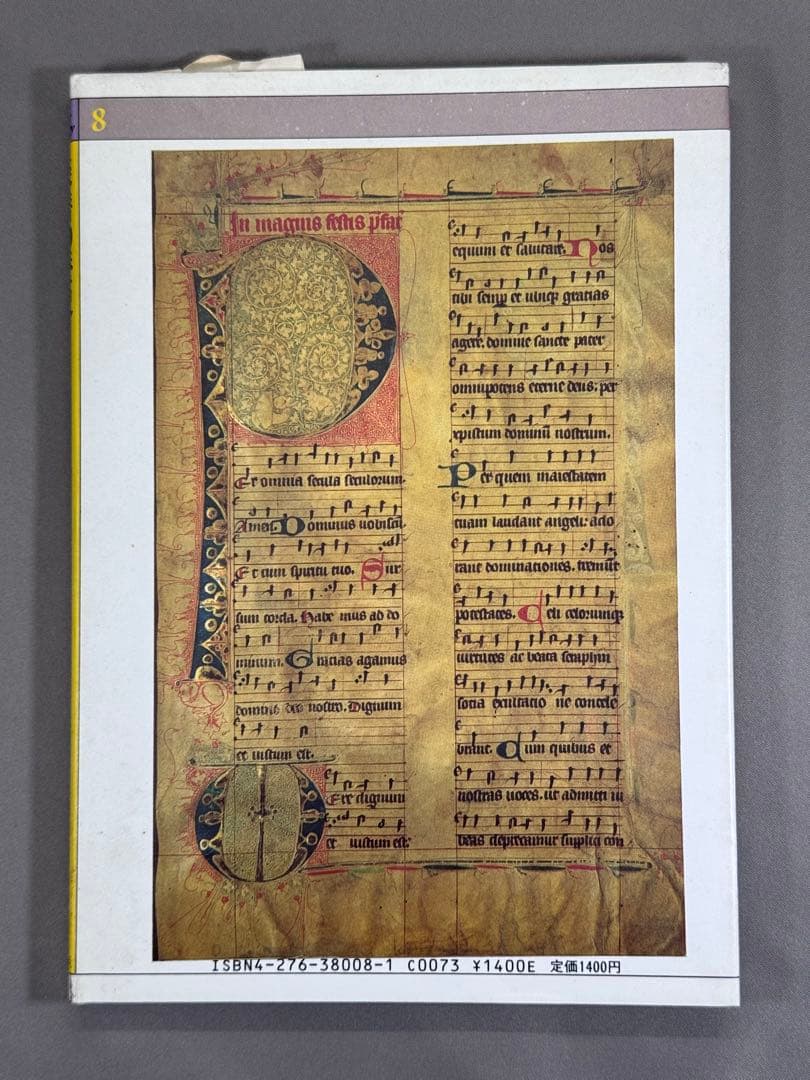 8
In magnis festis pfac
Per omnia secula seculorum.
Amen. Dominus uobiscū.
Et cum spiritu tuo. Sur
sum corda. Habe mus ad do
minum. Gracias agamus
domino deo nostro. Dignum
et iustum est.
Ere dignum
et iustum est.
equum et salutare. Nos
tibi semp et ubiqꝫ gratias
agere. domine sancte pater
omnipotens eterne deus. per
xpistum dominū nostrum.
Per quem maiestatem
tuam laudant angeli. ado
rant dominationes. tremūt
potestates. Celi celorumqꝫ
uirtutes ac beata seraphin
socia exultacio ne concele
brant. Cum quibus et
nostras uoces. ut admitti iu
beas deprecamur supplici con
ISBN4-276-38008-1 C0073 ¥1400E 定価1400円